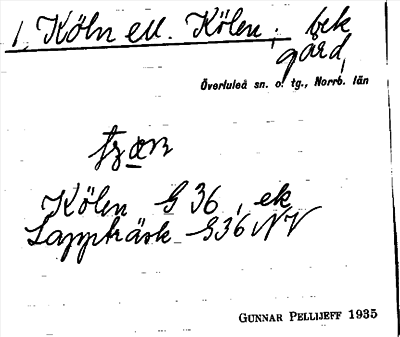 1. Köln ell. Kölen, bek
gård,
Överluleå sn. o. tg., Norrb. län
Kölen G 36, ek
Lappträsk G36 NV
GUNNAR PELLIJEFF 1935